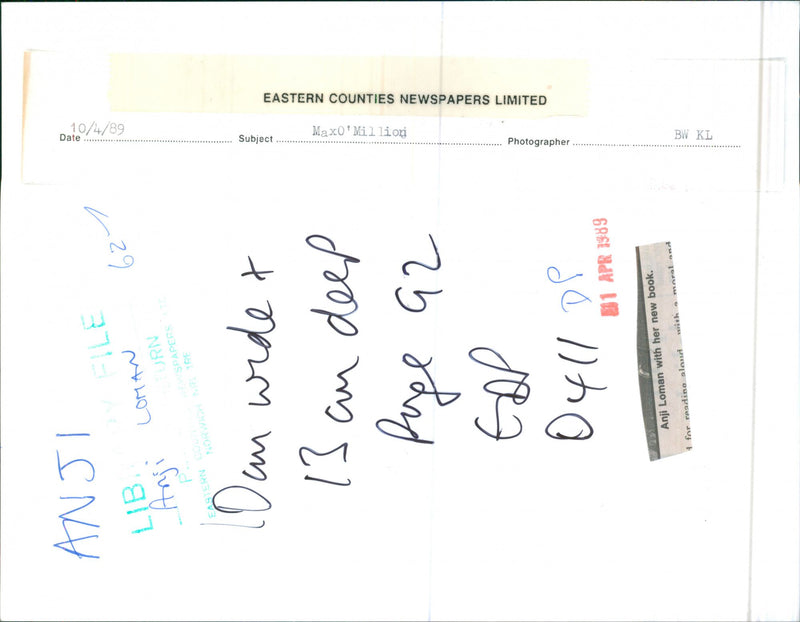 EASTERN COUNTIES NEWSPAPERS LIMITED
Date 10/4/89 Subject MaxO'Million Photographer BW KL
ANJI
62-1
LIB FILE
Anji LOMAN
TURN
EASTERN NEWSPAPERS
NORWICH
10cm wide +
13 cm deep
Page 92
EDP
0411
DP
1 APR 1989
Anji Loman with her new book.
for reading aloud with a moral and